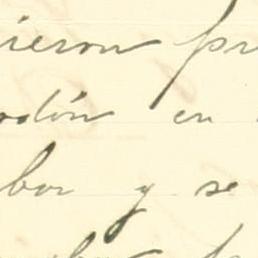 ieron pr
odón en
bor y se